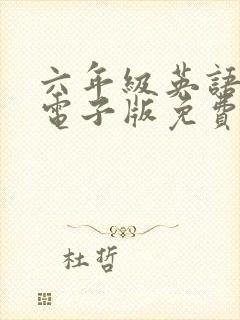 六年級英語
電子版免費
杜哲